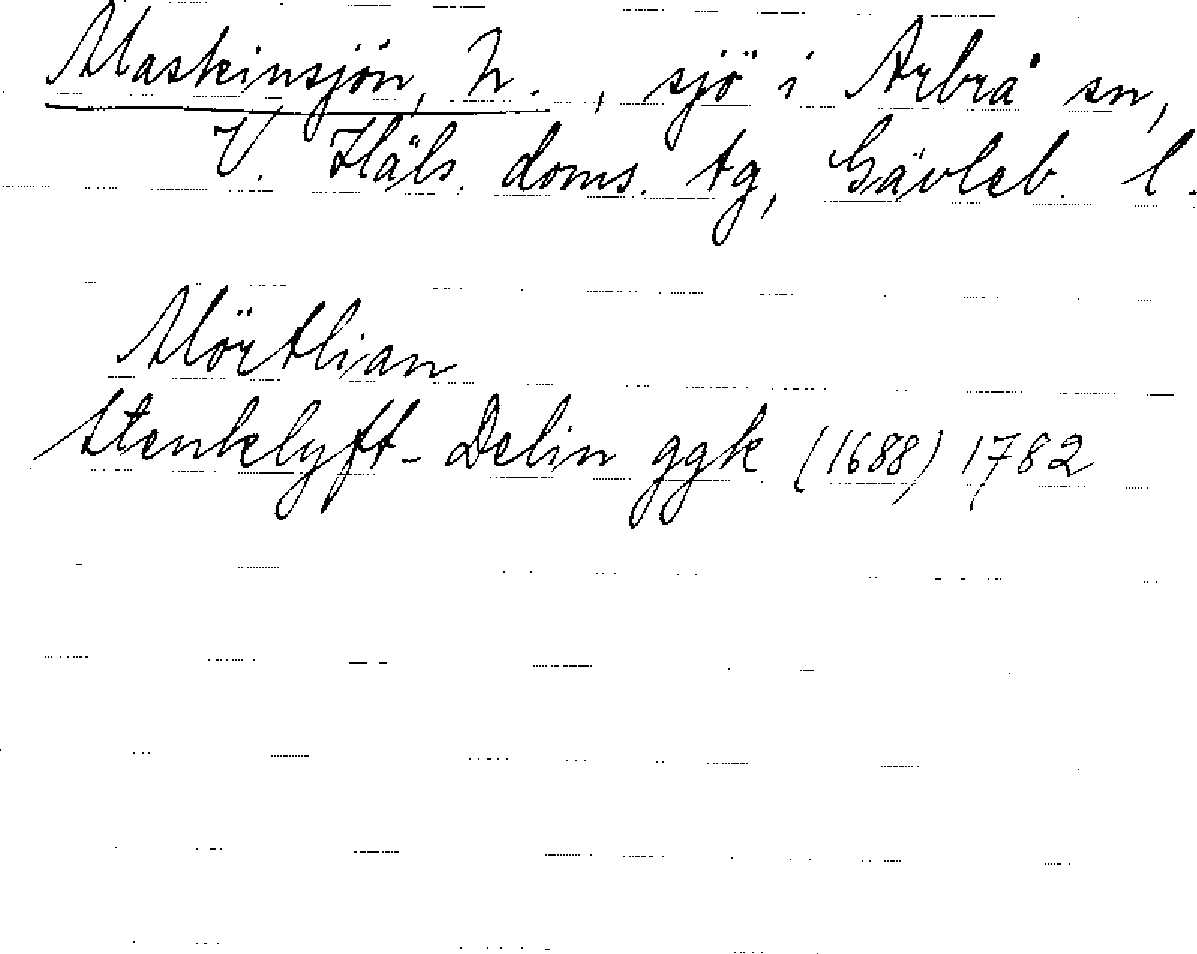 Maskinsjön, N. , sjö i Arbrå sn,
V. Häls. doms. tg, Gävleb. l.
Mörtlian
Stenklyft-Delin ggk (1688) 1782